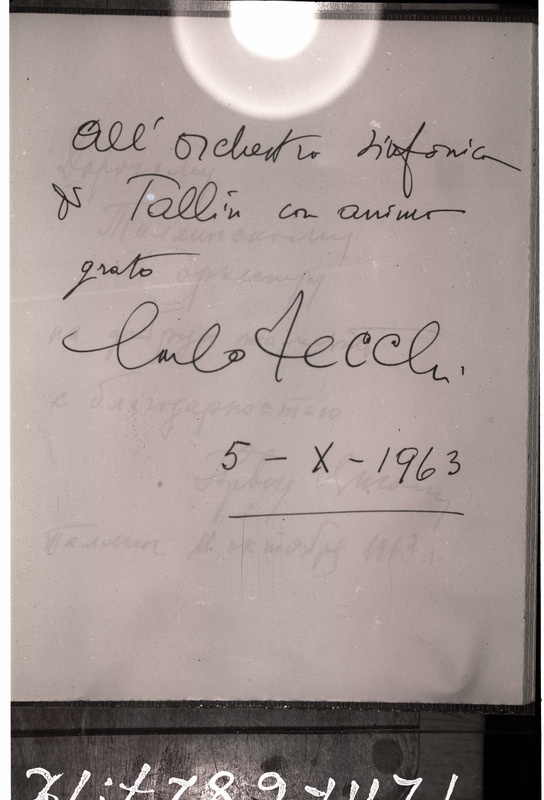 All' orchestra sinfonica
di Tallin con animo
grato
Carlo Zecchi.
5 - X - 1963
Дорогому
Таллинскому
оркестру
на
с благодарностью
Таллин 11 октября 1963 г.